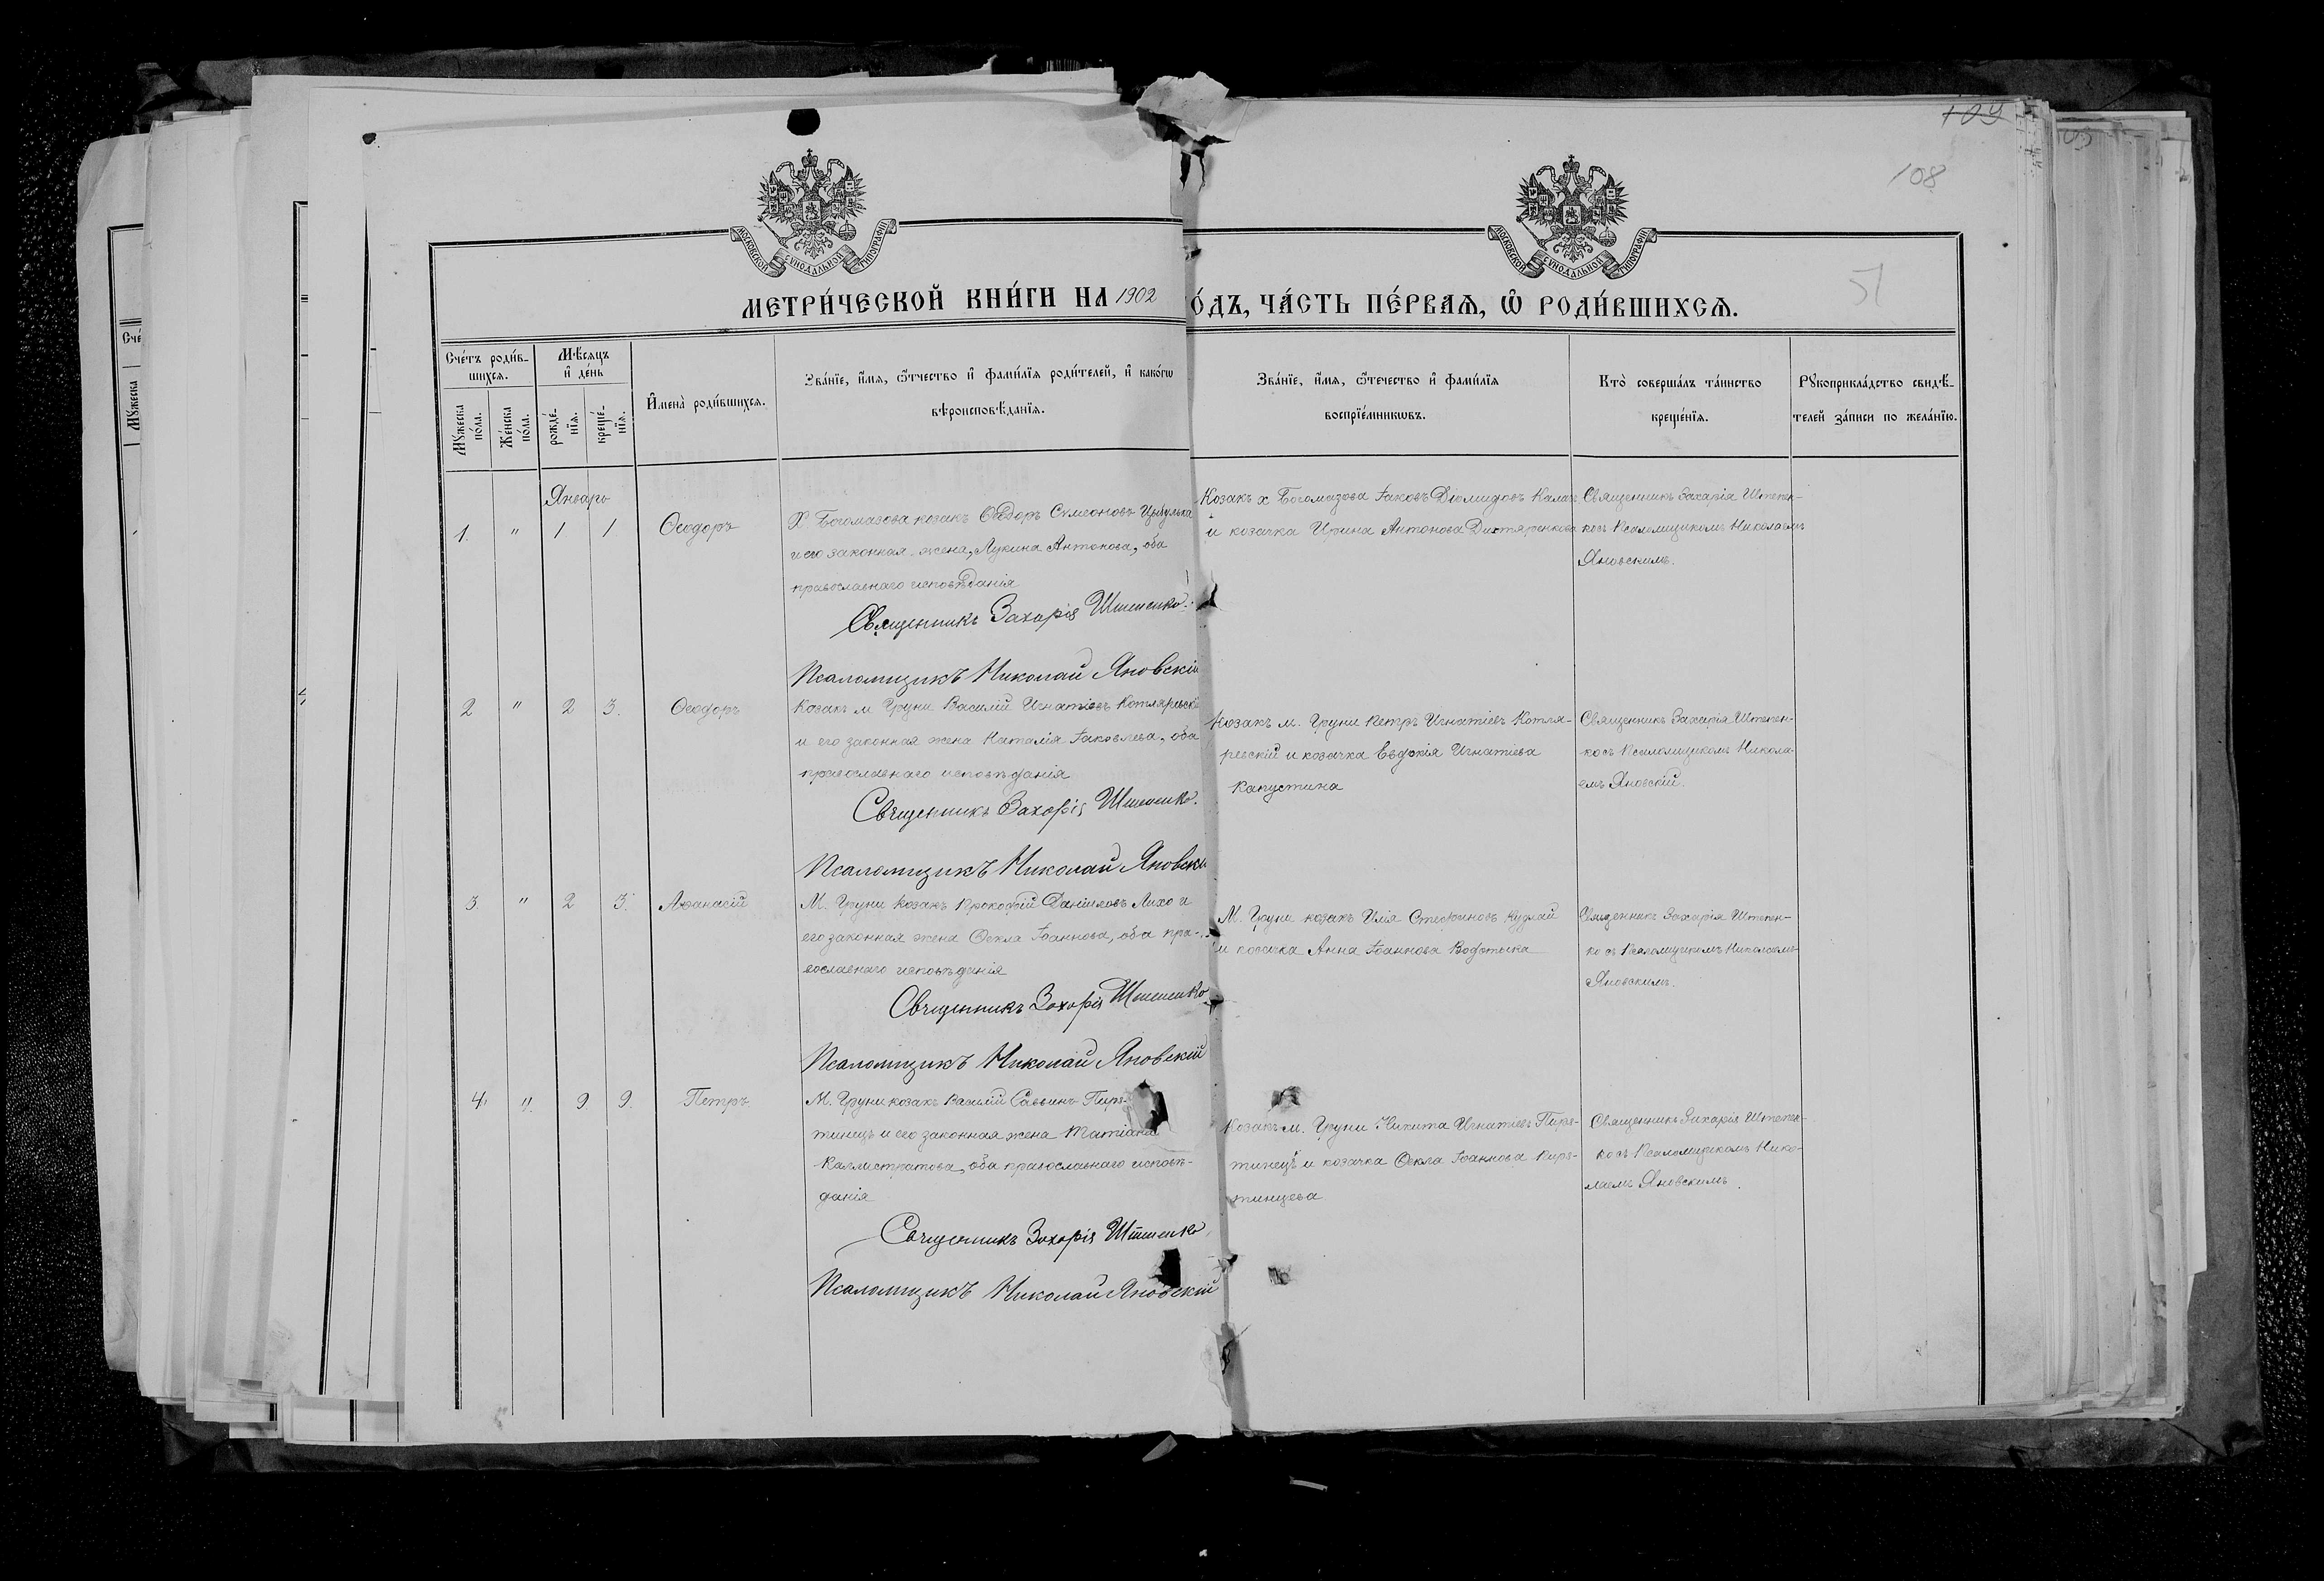 109
108
51
МОСКОВСКОЙ СѴНОДАЛЬНОЙ ТИПОГРАФІИ
МОСКОВСКОЙ СѴНОДАЛЬНОЙ ТИПОГРАФІИ
МЕТРИ́ЧЕСКОЙ КНИ́ГИ НА 1902
О́ДЪ, ЧА́СТЬ ПЕ́РВАѦ, Ѡ҆ РОДИ́ВШИХСѦ.
Сче́тъ роди́в-
шихсѧ.
Мꙋ́жеска
по́ла.
Же́нска
по́ла.
Мѣ́сѧцъ
и҆ де́нь
рожде́-
нїѧ.
креще́-
нїѧ.
И҆мена̀ роди́вшихсѧ.
Зва́нїе, и҆́мѧ, ѻ҆́тчество и҆ фами́лїѧ роди́телей, и҆ како́гѡ
вѣроисповѣ́данїѧ.
Зва́нїе, и҆́мѧ, ѻ҆́течество и҆ фами́лїѧ
воспрїе́мникѡвъ.
Кто̀ соверша́лъ та́инство
креще́нїѧ.
Рꙋкоприкла́дство свидѣ́-
телей за́писи по жела́нїю.
Январь
1. " 1 1 Ѳеодоръ
Х. Богомазова козакъ Ѳеодоръ Сѵмеоновъ Цыбулька
и его законная жена, Лукина Антонова, оба
православнаго исповѣданія
Священникъ Захарія Штепенко.
Псаломщикъ Николай Яновскій
Козакъ х Богомазова Іаковъ Діомидовъ Калаш
и козачка Ирина Антонова Дихтяренкова
Священникъ Захарія Штепен-
ко съ Псаломщикомъ Николаемъ
Яновскимъ.
2 " 2 3. Ѳеодоръ
Козакъ м Груни Василій Игнатіевъ Котляревскі
и его законная жена Наталія Іаковлева, оба
православнаго исповѣданія
Священникъ Захарія Штепенко.
Псаломщикъ Николай Яновскі
Козакъ м. Груни Петръ Игнатіевъ Котля-
ревскій и козачка Евдокія Игнатіева
Капустина
Священникъ Захарія Штепен-
ко съ Псаломщикомъ Никола-
емъ Яновскій.
3 " 2 3. Аѳанасій
М. Груни козакъ Прокофій Даніиловъ Лихо и
его законная жена Ѳекла Іоаннова, оба пра-
вославнаго исповѣданія
Священникъ Захарія Штепенко
Псаломщикъ Николай Яновскій
М. Груни козакъ Илія Стефановъ Кудлай
и козачка Анна Іоаннова
Священникъ Захарія Штепен-
ко съ Псаломщикомъ Николаемъ
Яновскимъ.
4. " 9 9. Петръ
М. Груни козакъ Василій Саввинъ Пиря-
тинецъ и его законная жена Татіана
Каллистратова, оба православнаго исповѣ-
данія
Священникъ Захарія Штепенко
Псаломщикъ Николай Яновскій
Козакъ м. Груни Никита Игнатіевъ Пиря-
тинецъ и козачка Ѳекла Іоаннова Пиря-
тинцева
Священникъ Захарія Штепен-
ко съ Псаломщикомъ Нико-
лаемъ Яновскимъ.